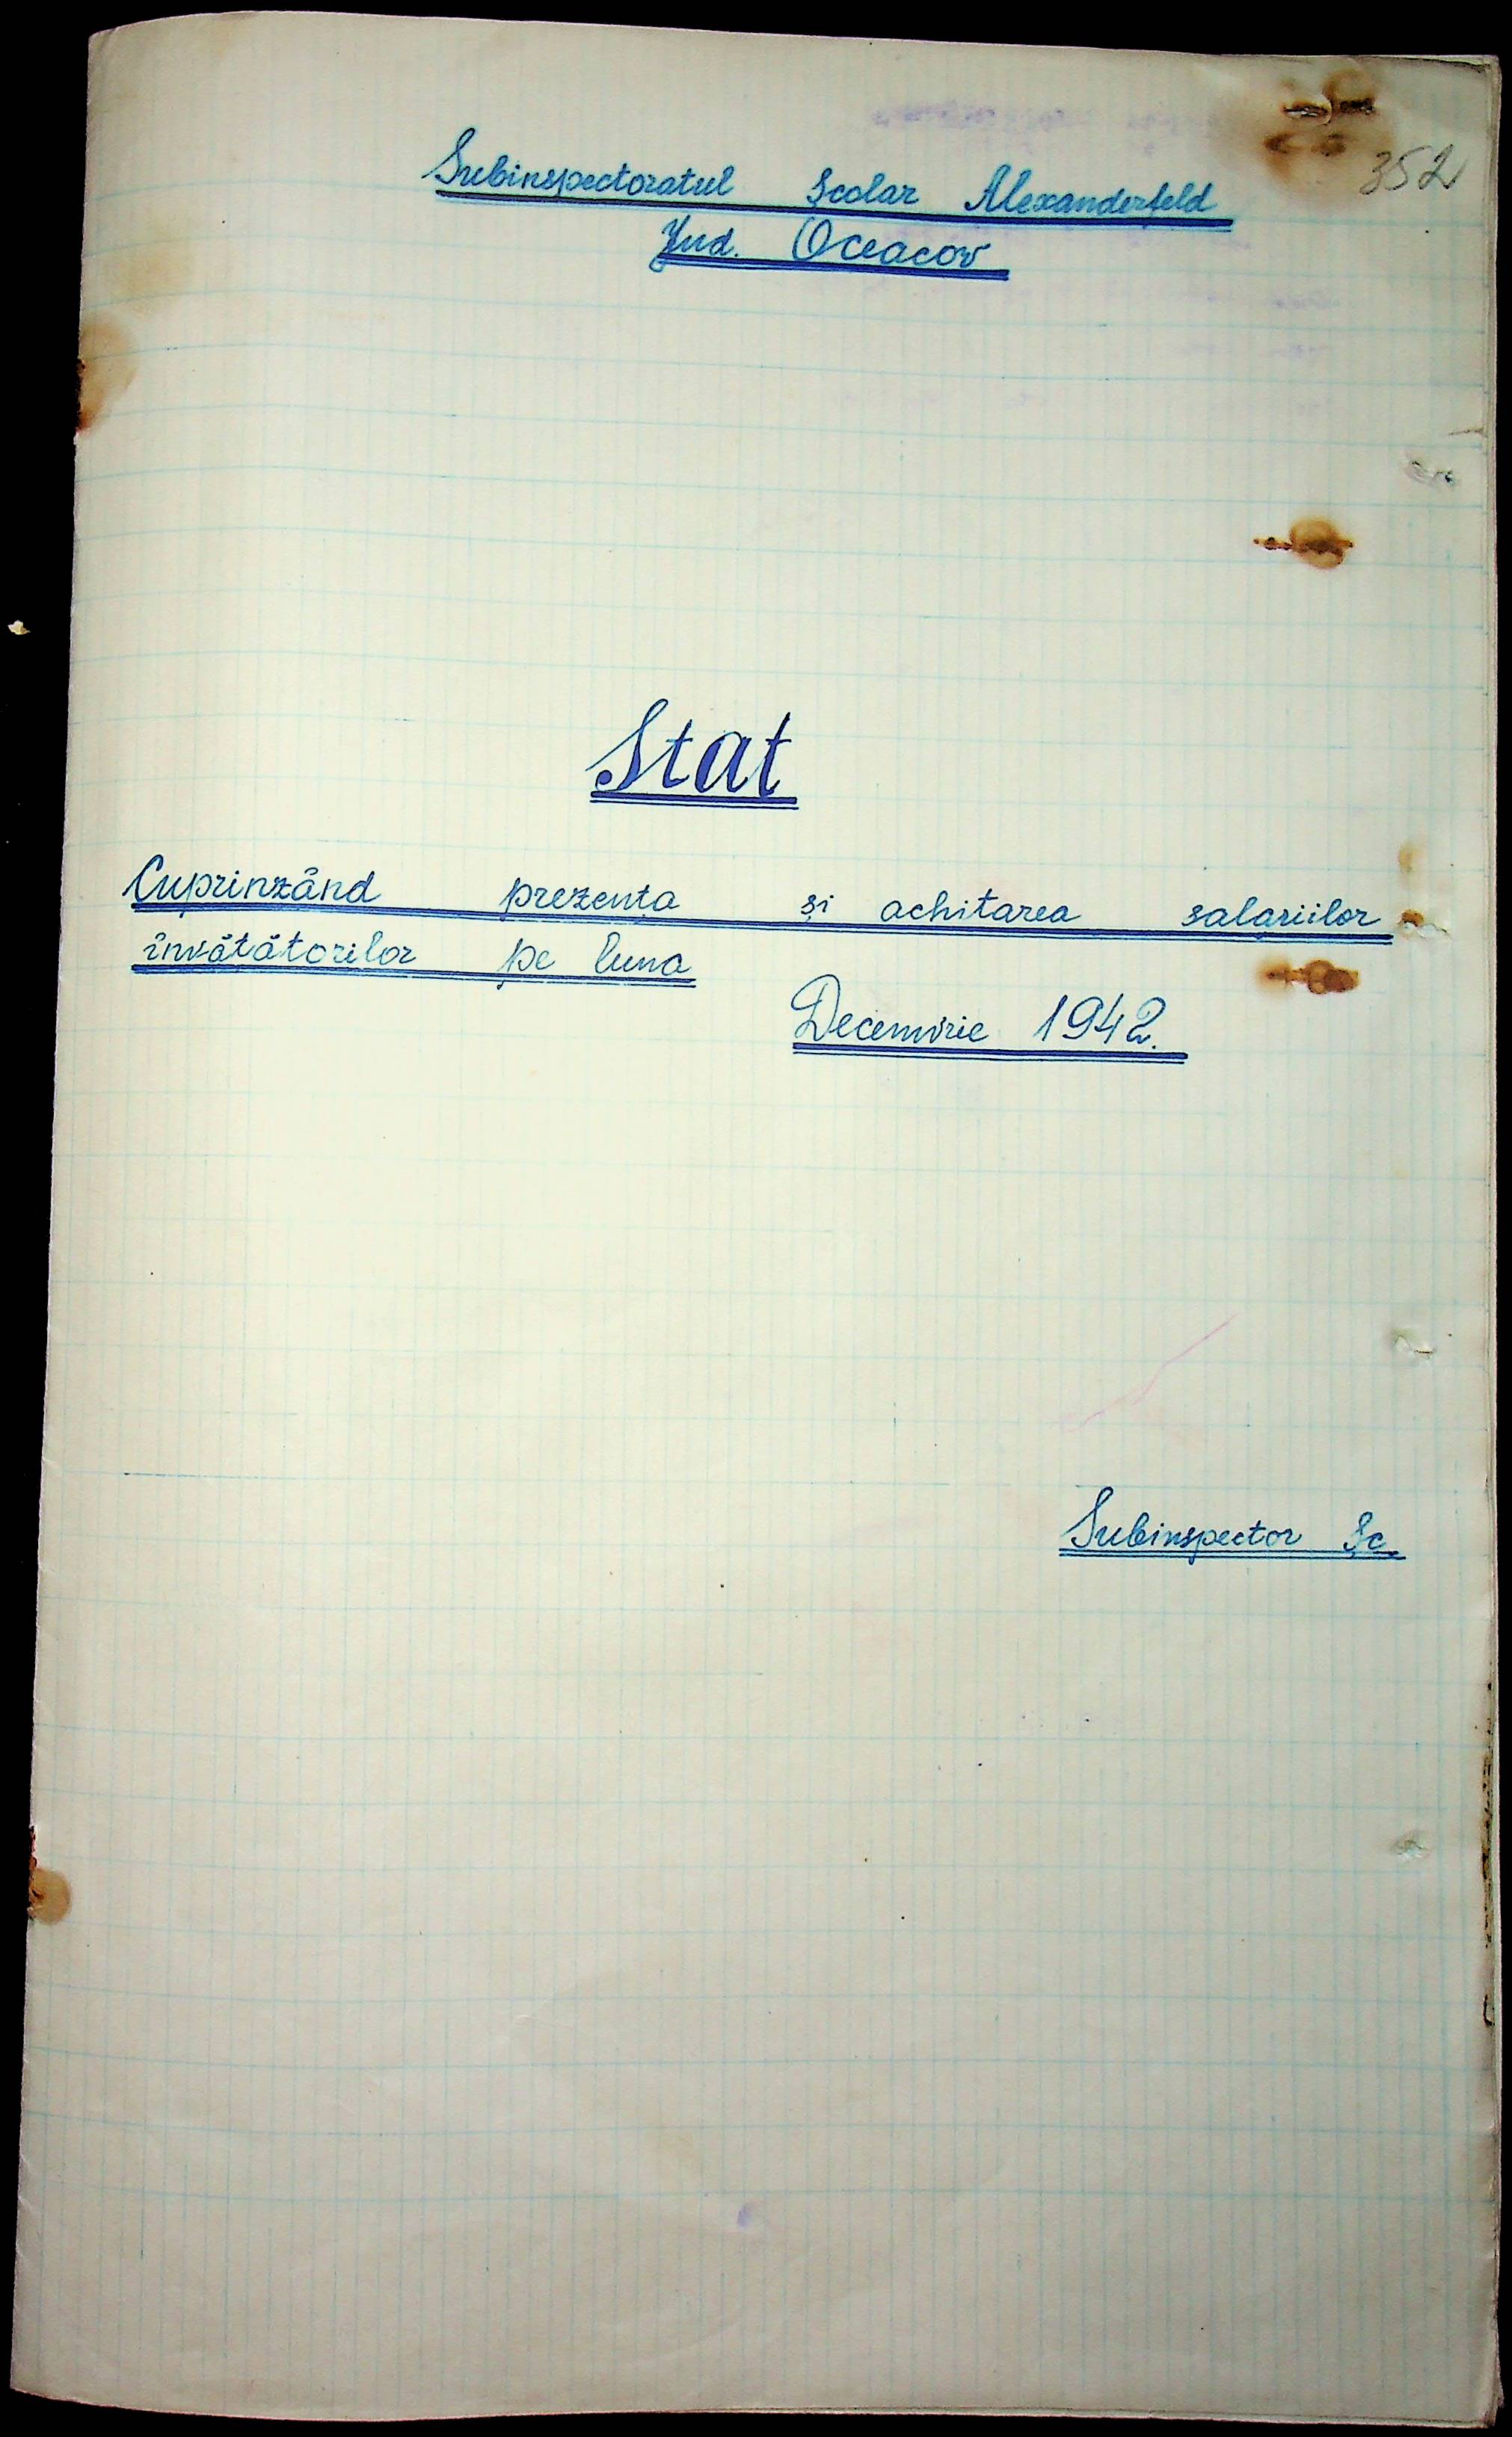 352
Subinspectoratul Scolar Alexanderfeld
Jud. Oceacov
Stat
Cuprinzând prezența și achitarea salariilor
învătătorilor pe luna
Decemvrie 1942.
Subinspector Sc.